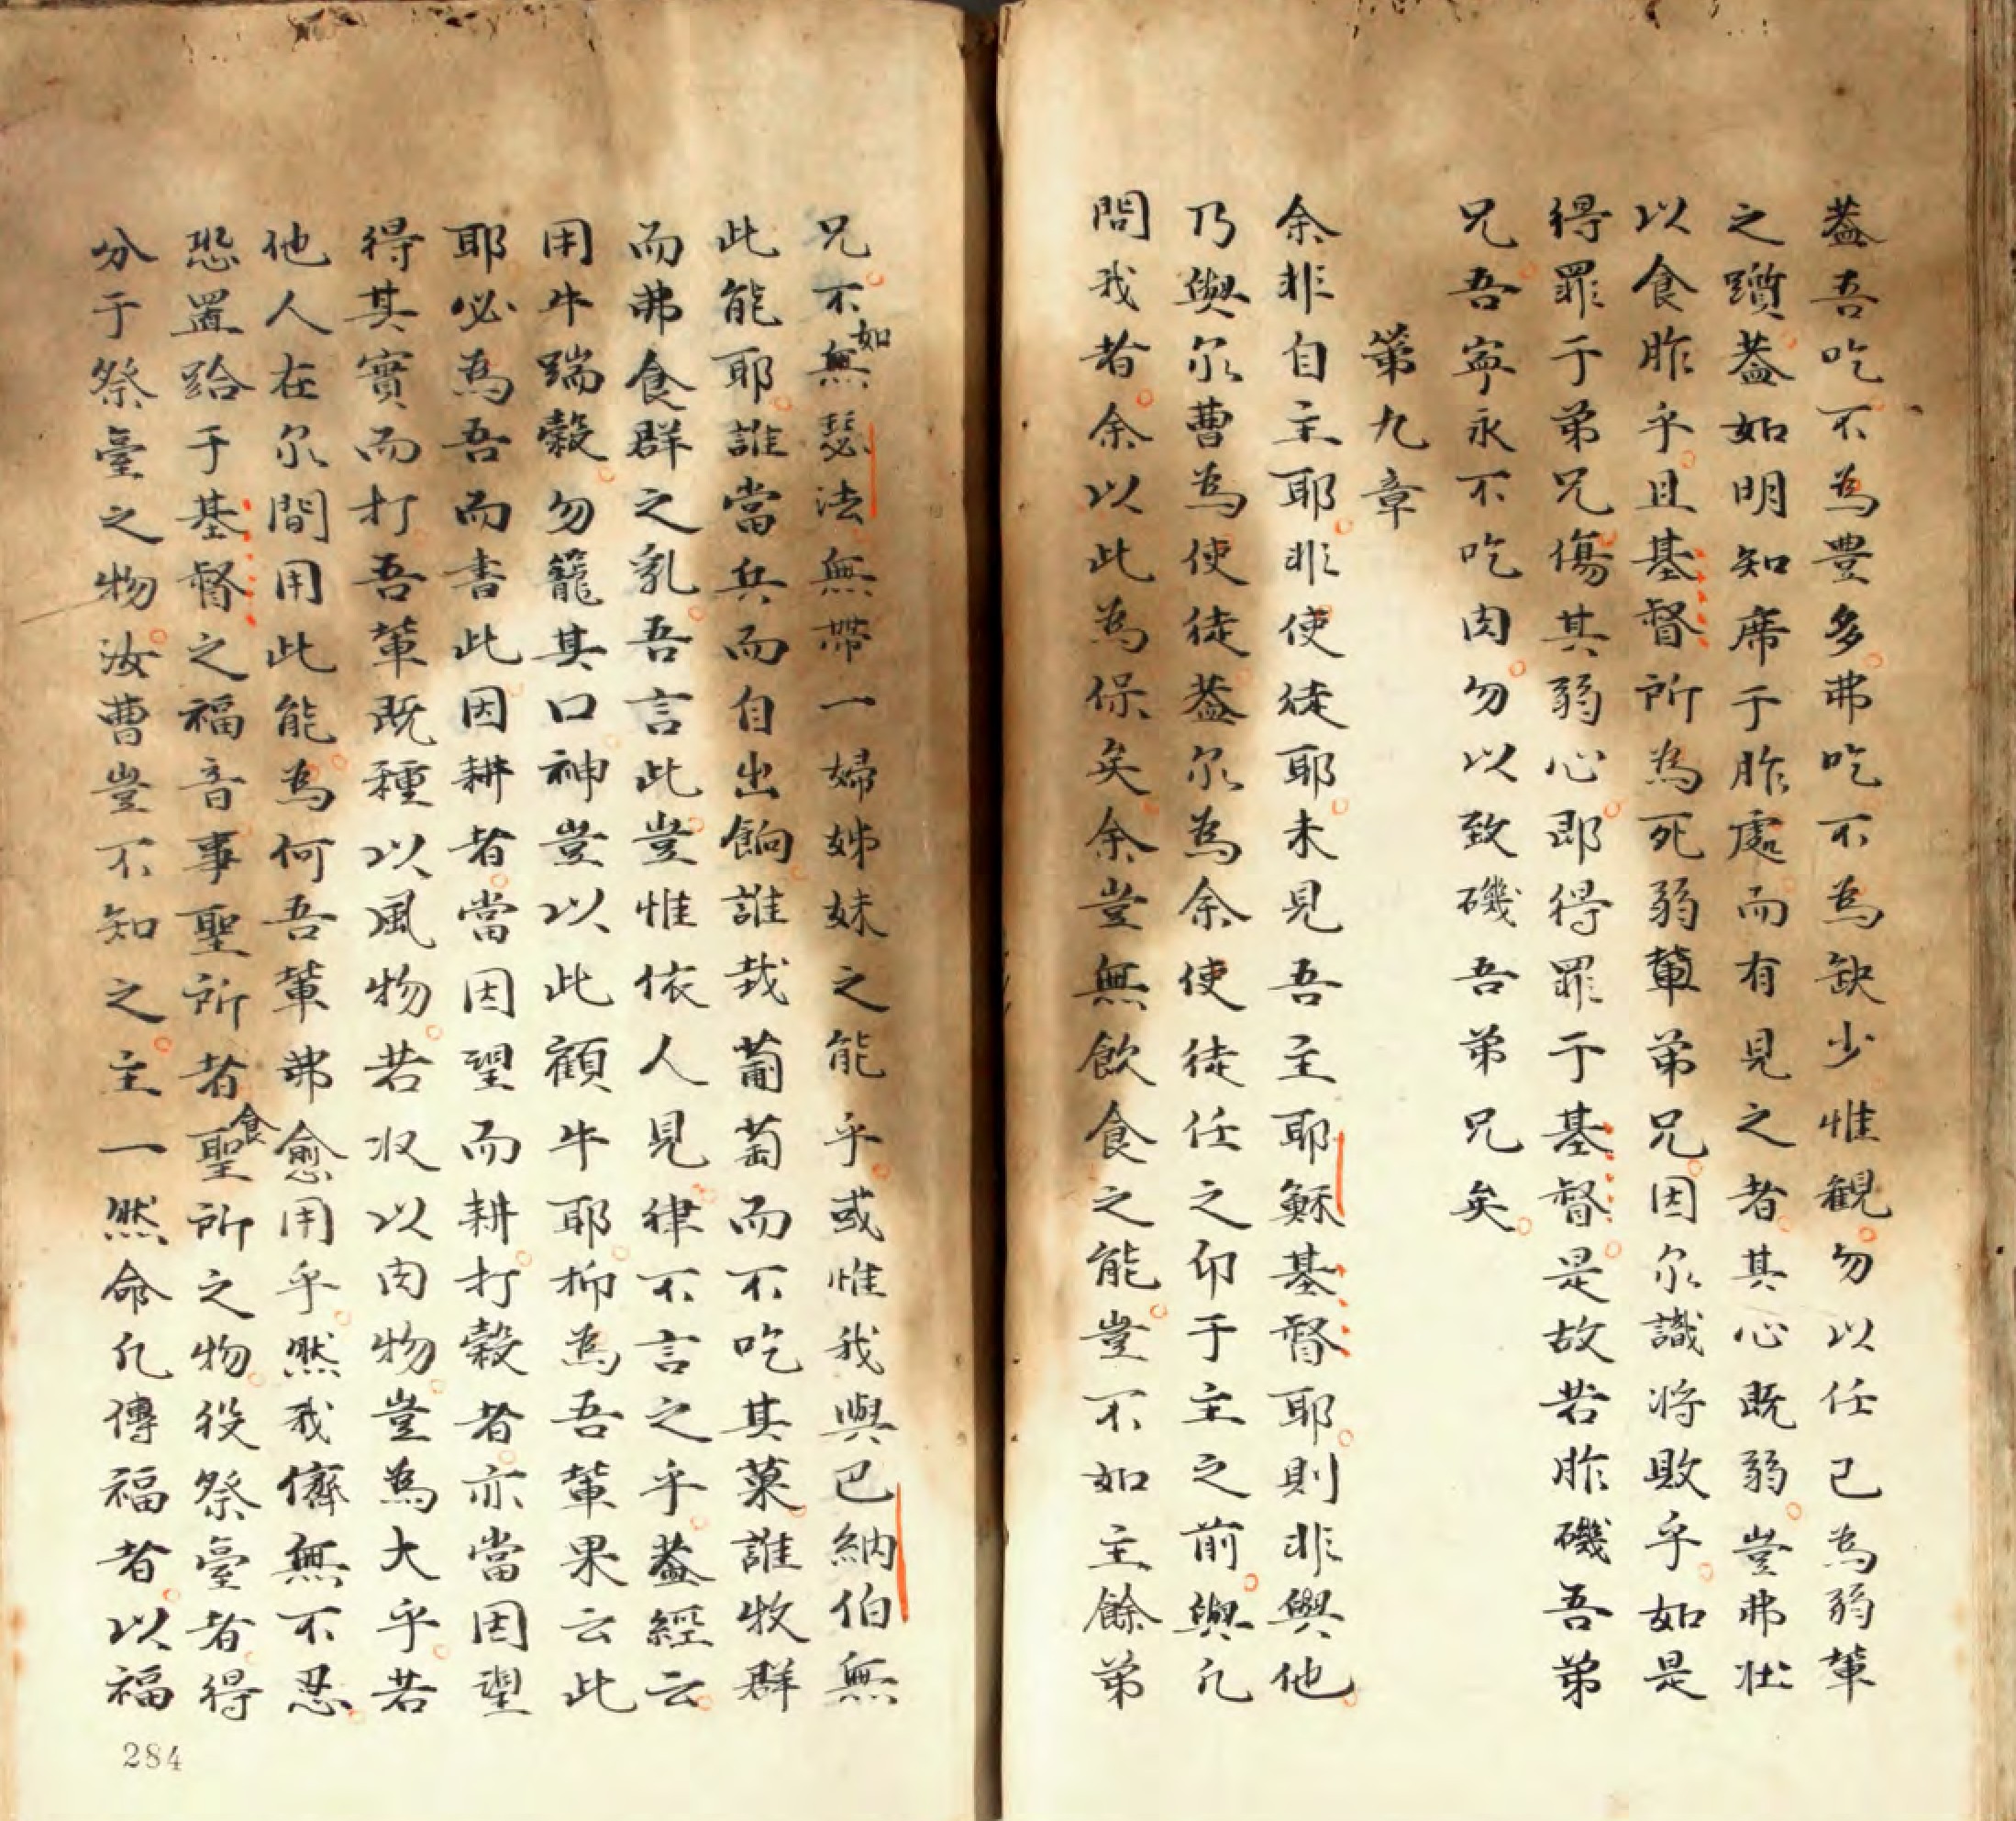 蓋吾吃不為豊多弗吃不為缺少惟観勿以任己為弱輩
之躓蓋如明知席于胙處而有見之者其心既弱豈弗壮
以食胙乎且基督所為死弱輩弟兄因尔識将敗乎如是
得罪于弟兄傷其弱心即得罪于基督是故若胙磯吾弟
兄吾寧永不吃肉勿以致磯吾弟兄矣
第九章
余非自主耶非使徒耶未見吾主耶穌基督耶則非與他
乃與尔曹為使徒蓋尔為余使徒任之卬于主之前與凢
問我者余以此為保矣余豈無飲食之能豈不如主餘弟
兄不如無瑟法無帶一婦姊妹之能乎或惟我與巴納伯無
此能耶誰當兵而自出餉誰栽葡萄而不吃其菓誰牧群
而弗食群之乳吾言此豈惟依人見律不言之乎蓋經云
用牛踹穀勿籠其口神豈以此顧牛耶抑為吾輩果云此
耶必為吾而書此因耕者當因望而耕打穀者亦當因望
得其實而打吾輩既種以風物若収以肉物豈為大乎若
他人在尔間用此能為何吾輩弗愈用乎然我儕無不忍
恐置跲于基督之福音事聖所者食聖所之物役祭臺者得
分于祭臺之物汝曹豈不知之主一然命凢傳福者以福
284